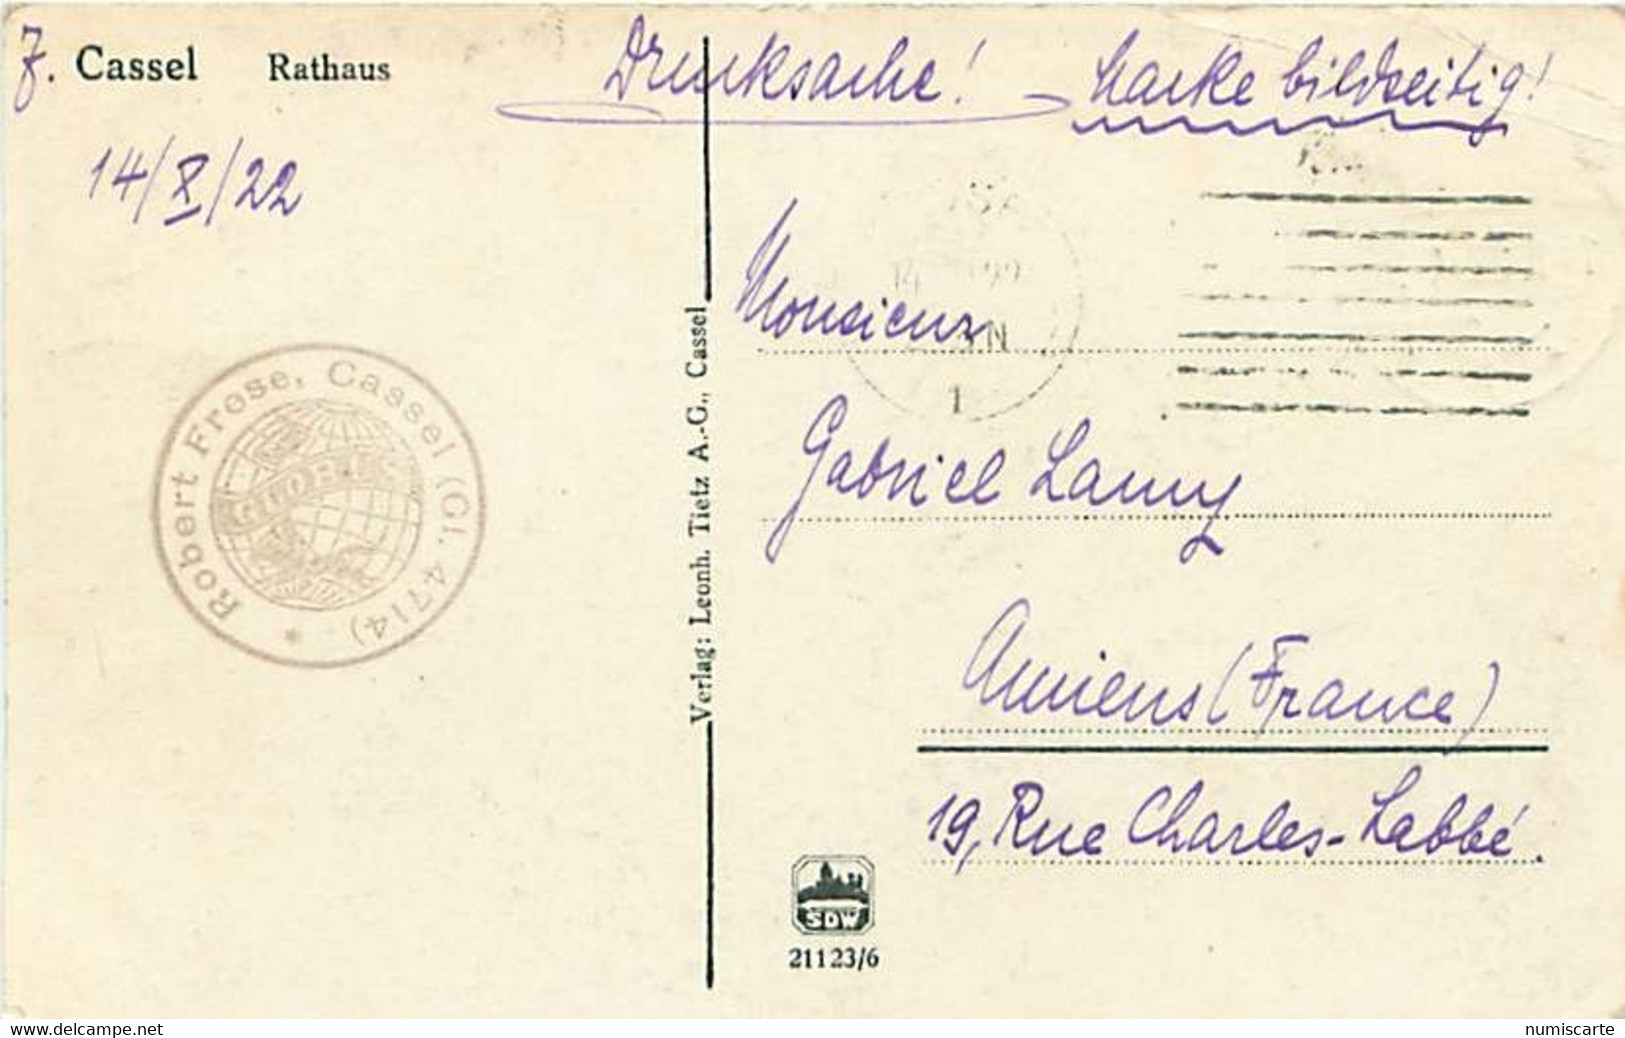 7. Cassel Rathaus
Drucksache! Marke bildseitig!
14/X/22
Robert Frese, Cassel (Gl. 4714) *
GLOBUS
Verlag: Leonh. Tietz A.-G., Cassel
14
N
1
Monsieur
Gabriel Lamy
Amiens (France)
19, Rue Charles-Labbé.
SDW
21123/6
www.delcampe.net
numiscarte